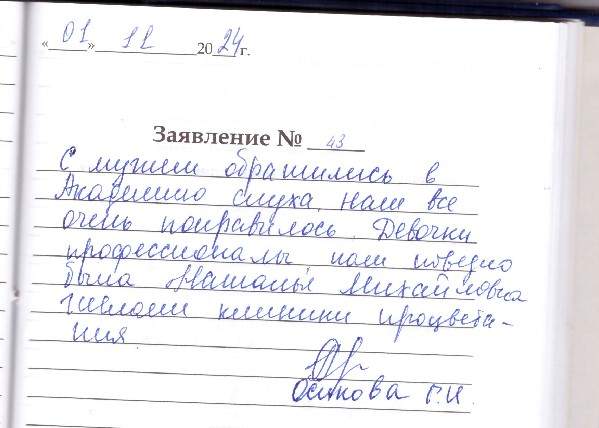 « 01 » 12 2024г.
Заявление № 43
С мужем обратились в
Академию слуха. Нам все
очень понравилось. Девочки
профессионалы нам
была Наталья Михайловна
желаем клиники процвета-
ния
Осипова Г.И.